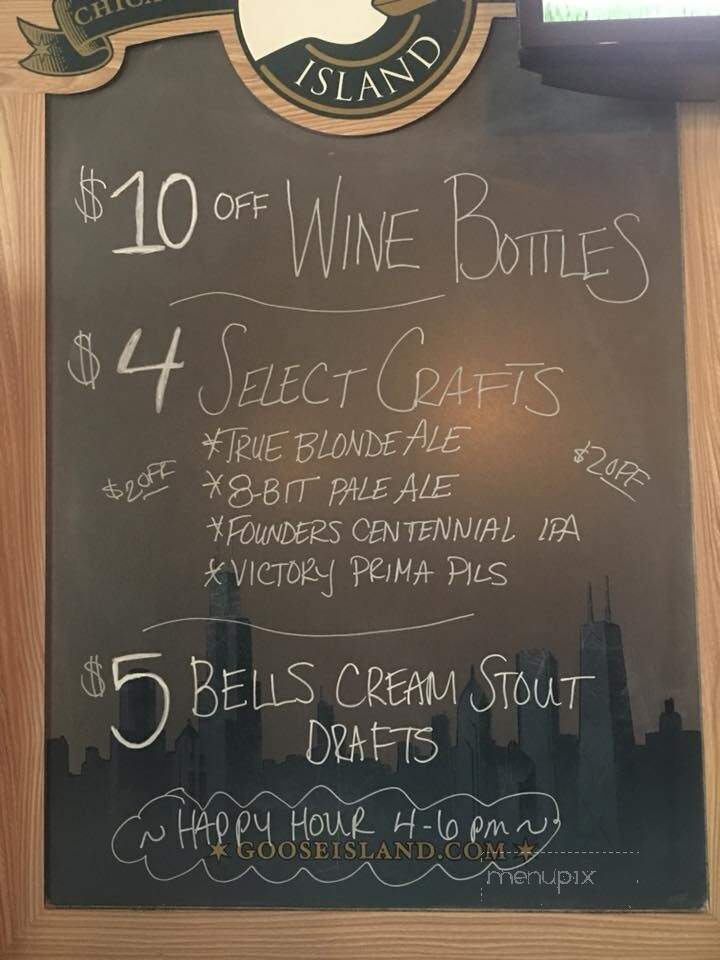 CHIC
ISLAND
$10 OFF WINE BOTTLES
$4 SELECT CRAFTS
*TRUE BLONDE ALE
$2 OFF *8-BIT PALE ALE $2 OFF
*FOUNDERS CENTENNIAL IPA
*VICTORY PRIMA PILS
$5 BELLS CREAM STOUT
DRAFTS
~ HAPPY HOUR 4-6 pm ~
* GOOSEISLAND.COM *
menupix